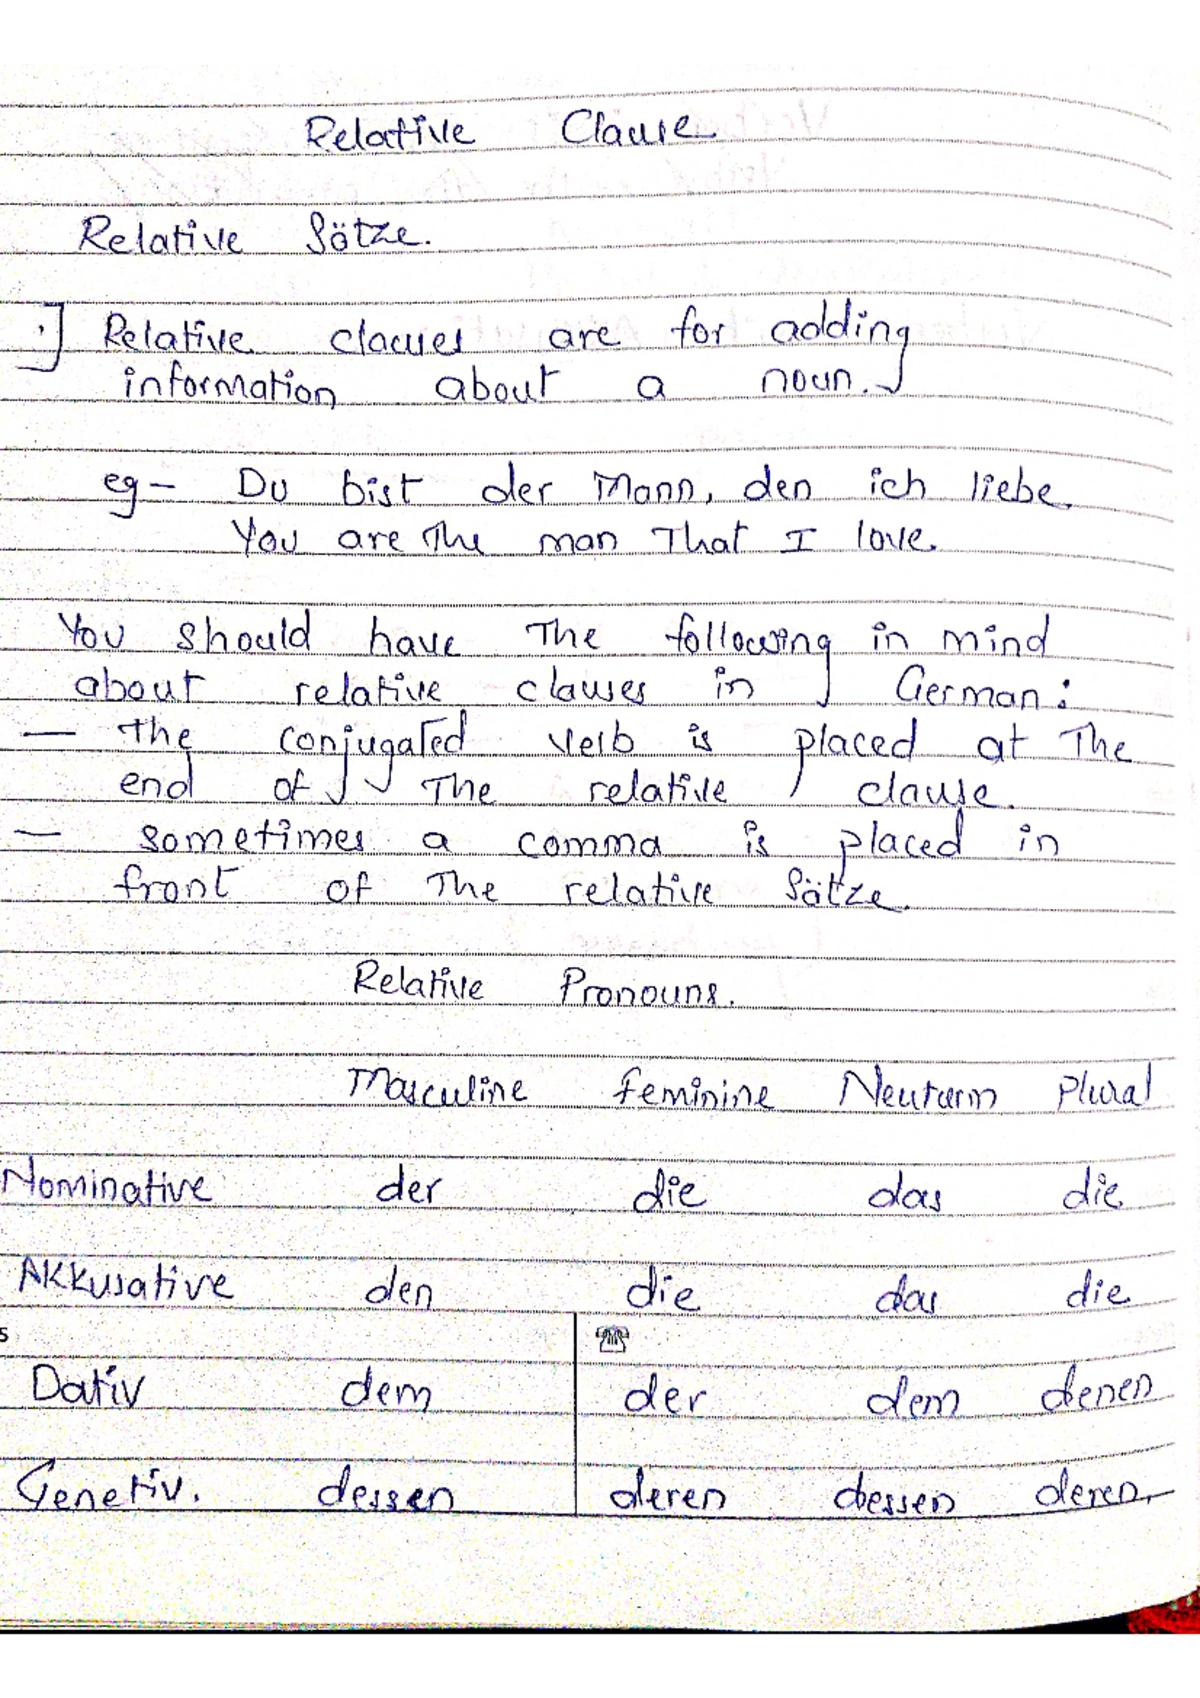 Relative Clause
Relative Sätze.
Relative clacues are for adding
information about a noun.
eg- Du bist der Mann, den ich liebe.
You are the man That I love.
You should have The following in mind
about relative clauses in German:
- the conjugated verb is placed at The
end of The relative clause.
- sometimes a comma is placed in
front of The relative Sätze.
Relative Pronouns.
Masculine feminine Neuturm Plural
Nominative der die das die
AKKusative den die das die
s
Dativ dem der dem denen
Genetiv. dessen deren dessen deren.